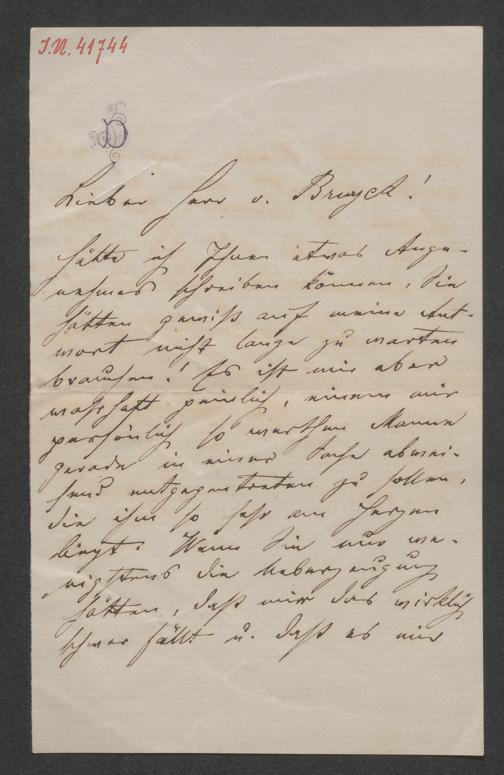 I.N. 41744
D
Lieber Herr v. Bruyck!
Hätte ich Ihnen etwas Ange-
nehmes schreiben können, Sie
hätten gewiß auf meine Ant-
wort nicht lange zu warten
brauchen! Es ist mir aber
wahrhaft peinlich, einem mir
persönlich so werthen Manne
gerade in einer Sache abwei-
send entgegentreten zu sollen,
die ihm so sehr am Herzen
liegt. Wenn Sie nur we-
nigstens die Ueberzeugung
hätten, daß mir das wirklich
schwer fällt u. daß es mir